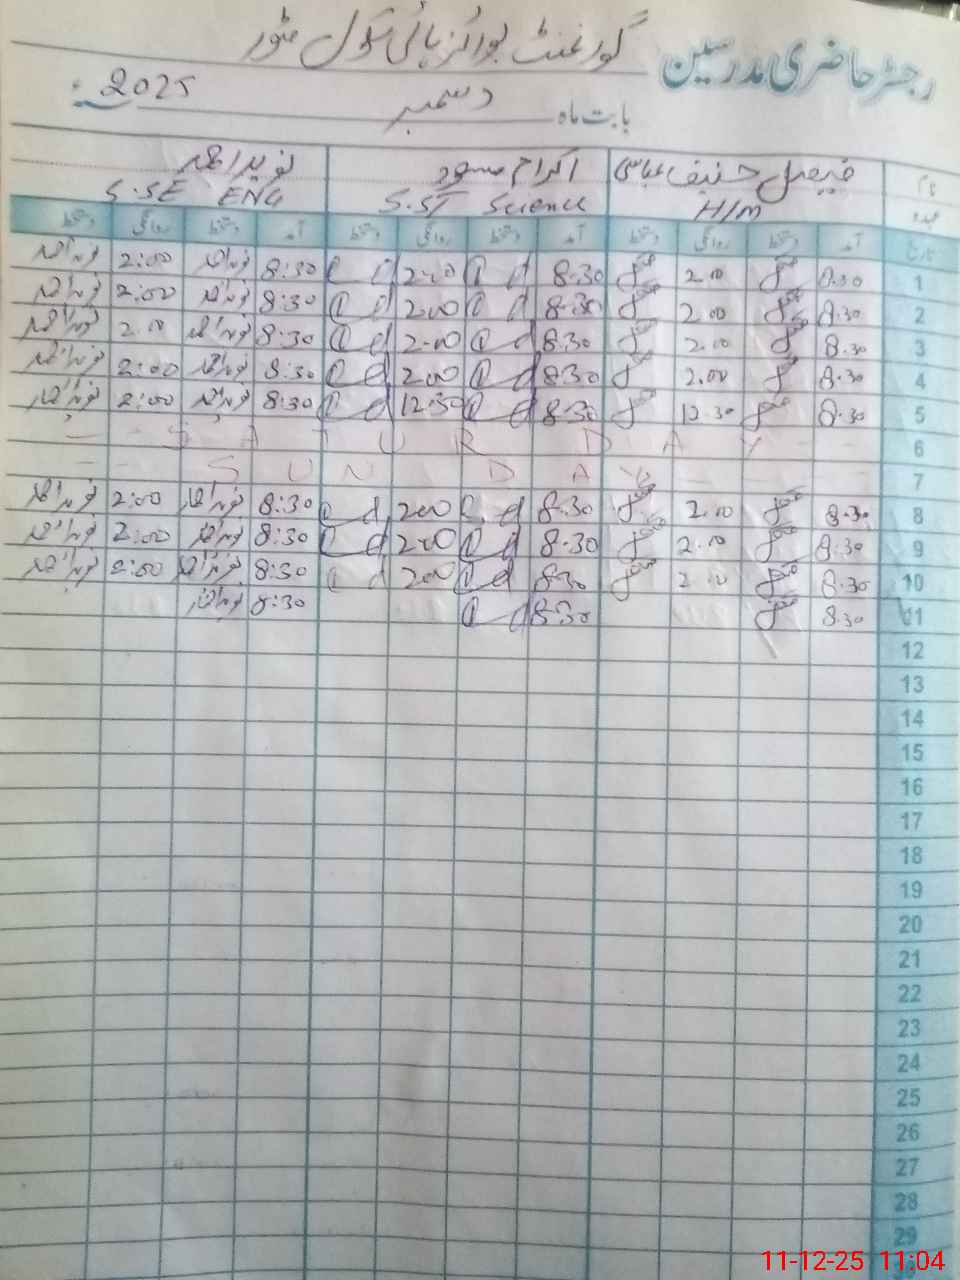 رجسٹر حاضری مدرسین گورنمنٹ بوائز ہائی سکول
بابت ماہ دسمبر 2025
نام فیصل حنیف عباسی اکرام مسعود نوید احمد
عہدہ H/M S.ST Science S.SE ENG
تاریخ آمد دستخط روانگی دستخط آمد دستخط روانگی دستخط آمد دستخط روانگی دستخط
1 8.30 2.00 8.30 2.00 8:30 نوید احمد 2:00 نوید احمد
2 8.30 2.00 8.30 2.00 8:30 نوید احمد 2:00 نوید احمد
3 8.30 2.00 8.30 2.00 8:30 نوید احمد 2.00 نوید احمد
4 8.30 2.00 8.30 2.00 8:30 نوید احمد 2:00 نوید احمد
5 8.30 12.30 8.30 12.30 8:30 نوید احمد 2:00 نوید احمد
6 — — S A T U R D A Y —
7 — — S U N D A Y — —
8 8.30 2.00 8.30 2.00 8:30 نوید احمد 2:00 نوید احمد
9 8.30 2.00 8.30 2.00 8:30 نوید احمد 2:00 نوید احمد
10 8.30 2.00 8.30 2.00 8:30 نوید احمد 2:00 نوید احمد
11 8.30 8.30 8:30 نوید احمد
12
13
14
15
16
17
18
19
20
21
22
23
24
25
26
27
28
29
11-12-25 11:04